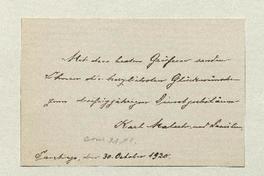 Mit den besten Grüssen senden
Ihnen die herzlichsten Glückwünsche
zum dreissigjährigen Dienstjubiläum
Karl und Familie
den 30. October 1920.